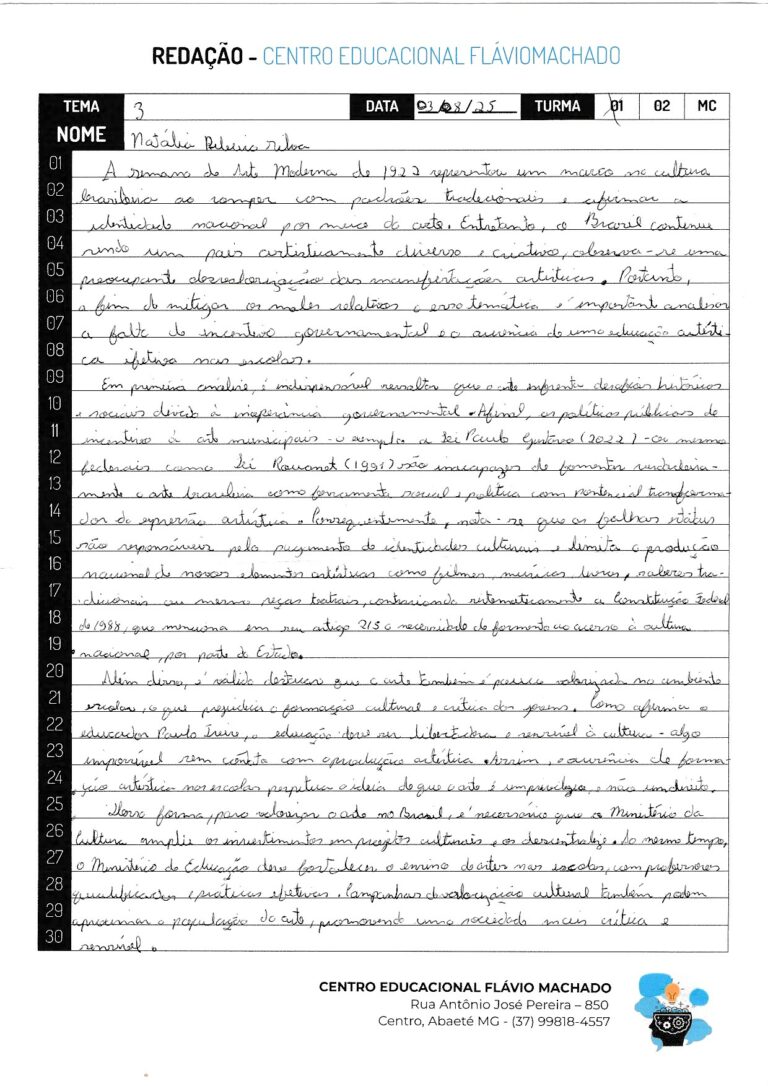 REDAÇÃO - CENTRO EDUCACIONAL FLÁVIOMACHADO
TEMA 3 DATA 03/08/25 TURMA 01 02 MC
NOME Natália Ribeiro Silva
01 A semana de Arte Moderna de 1922 representou um marco na cultura
02 brasileira ao romper com padrões tradicionais e afirmar a
03 identidade nacional por meio da arte. Entretanto, o Brasil continue
04 sendo um pais artisticamente diverso e criativo, observa-se uma
05 preocupante desvalorização das manifestações artísticas. Portanto,
06 a fim de mitigar os males relativos a essa temática é important analisar
07 a falta de incentivo governamental e a ausência de uma educação artísti-
08 ca efetiva nas escolas.
09 Em primeira análise, é indispensável ressaltar que a arte enfrenta desafios históricos
10 e sociais devido à inoperância governamental. Afinal, as políticas públicas de
11 incentivo à arte municipais - o exemplo a Lei Paulo Gustavo (2022) - ou mesmo
12 federais como Lei Rouanet (1991) são incapazes de fomentar verdadeira-
13 mente a arte brasileira como ferramenta social e política com potencial transforma-
14 dor da expressão artística. Consequentemente, nota-se que as falhas estatais
15 são responsáveis pelo apagamento de identidades culturais e limita a produção
16 nacional de novos elementos artísticos como filmes, músicas, livros, saberes tra-
17 dicionais ou mesmo peças teatrais, contrariando sistematicamente a Constituição Federal
18 de 1988, que menciona em seu artigo 215 a necessidade de fomento ao acesso à cultura
19 nacional, por parte do Estado.
20 Além disso, é válido destacar que a arte também é pouco valorizada no ambiente
21 escolar, o que prejudica a formação cultural e crítica dos jovens. Como afirma o
22 educador Paulo Freire, a educação deve ser libertadora e sensível à cultura - algo
23 impossível sem contato com a produção artística. Assim, a ausência de forma-
24 ção artística nas escolas perpetua a ideia de que a arte é um privilégio, e não um direito.
25 Dessa forma, para valorizar a arte no Brasil, é necessário que o Ministério da
26 Cultura amplie os investimentos em projetos culturais e os descentralize. Ao mesmo tempo,
27 o Ministério da Educação deve fortalecer o ensino de artes nas escolas, com professores
28 qualificados e práticas efetivas. Campanhas de valorização cultural também podem
29 aproximar a população da arte, promovendo uma sociedade mais crítica e
30 sensível.
CENTRO EDUCACIONAL FLÁVIO MACHADO
Rua Antônio José Pereira – 850
Centro, Abaeté MG - (37) 99818-4557